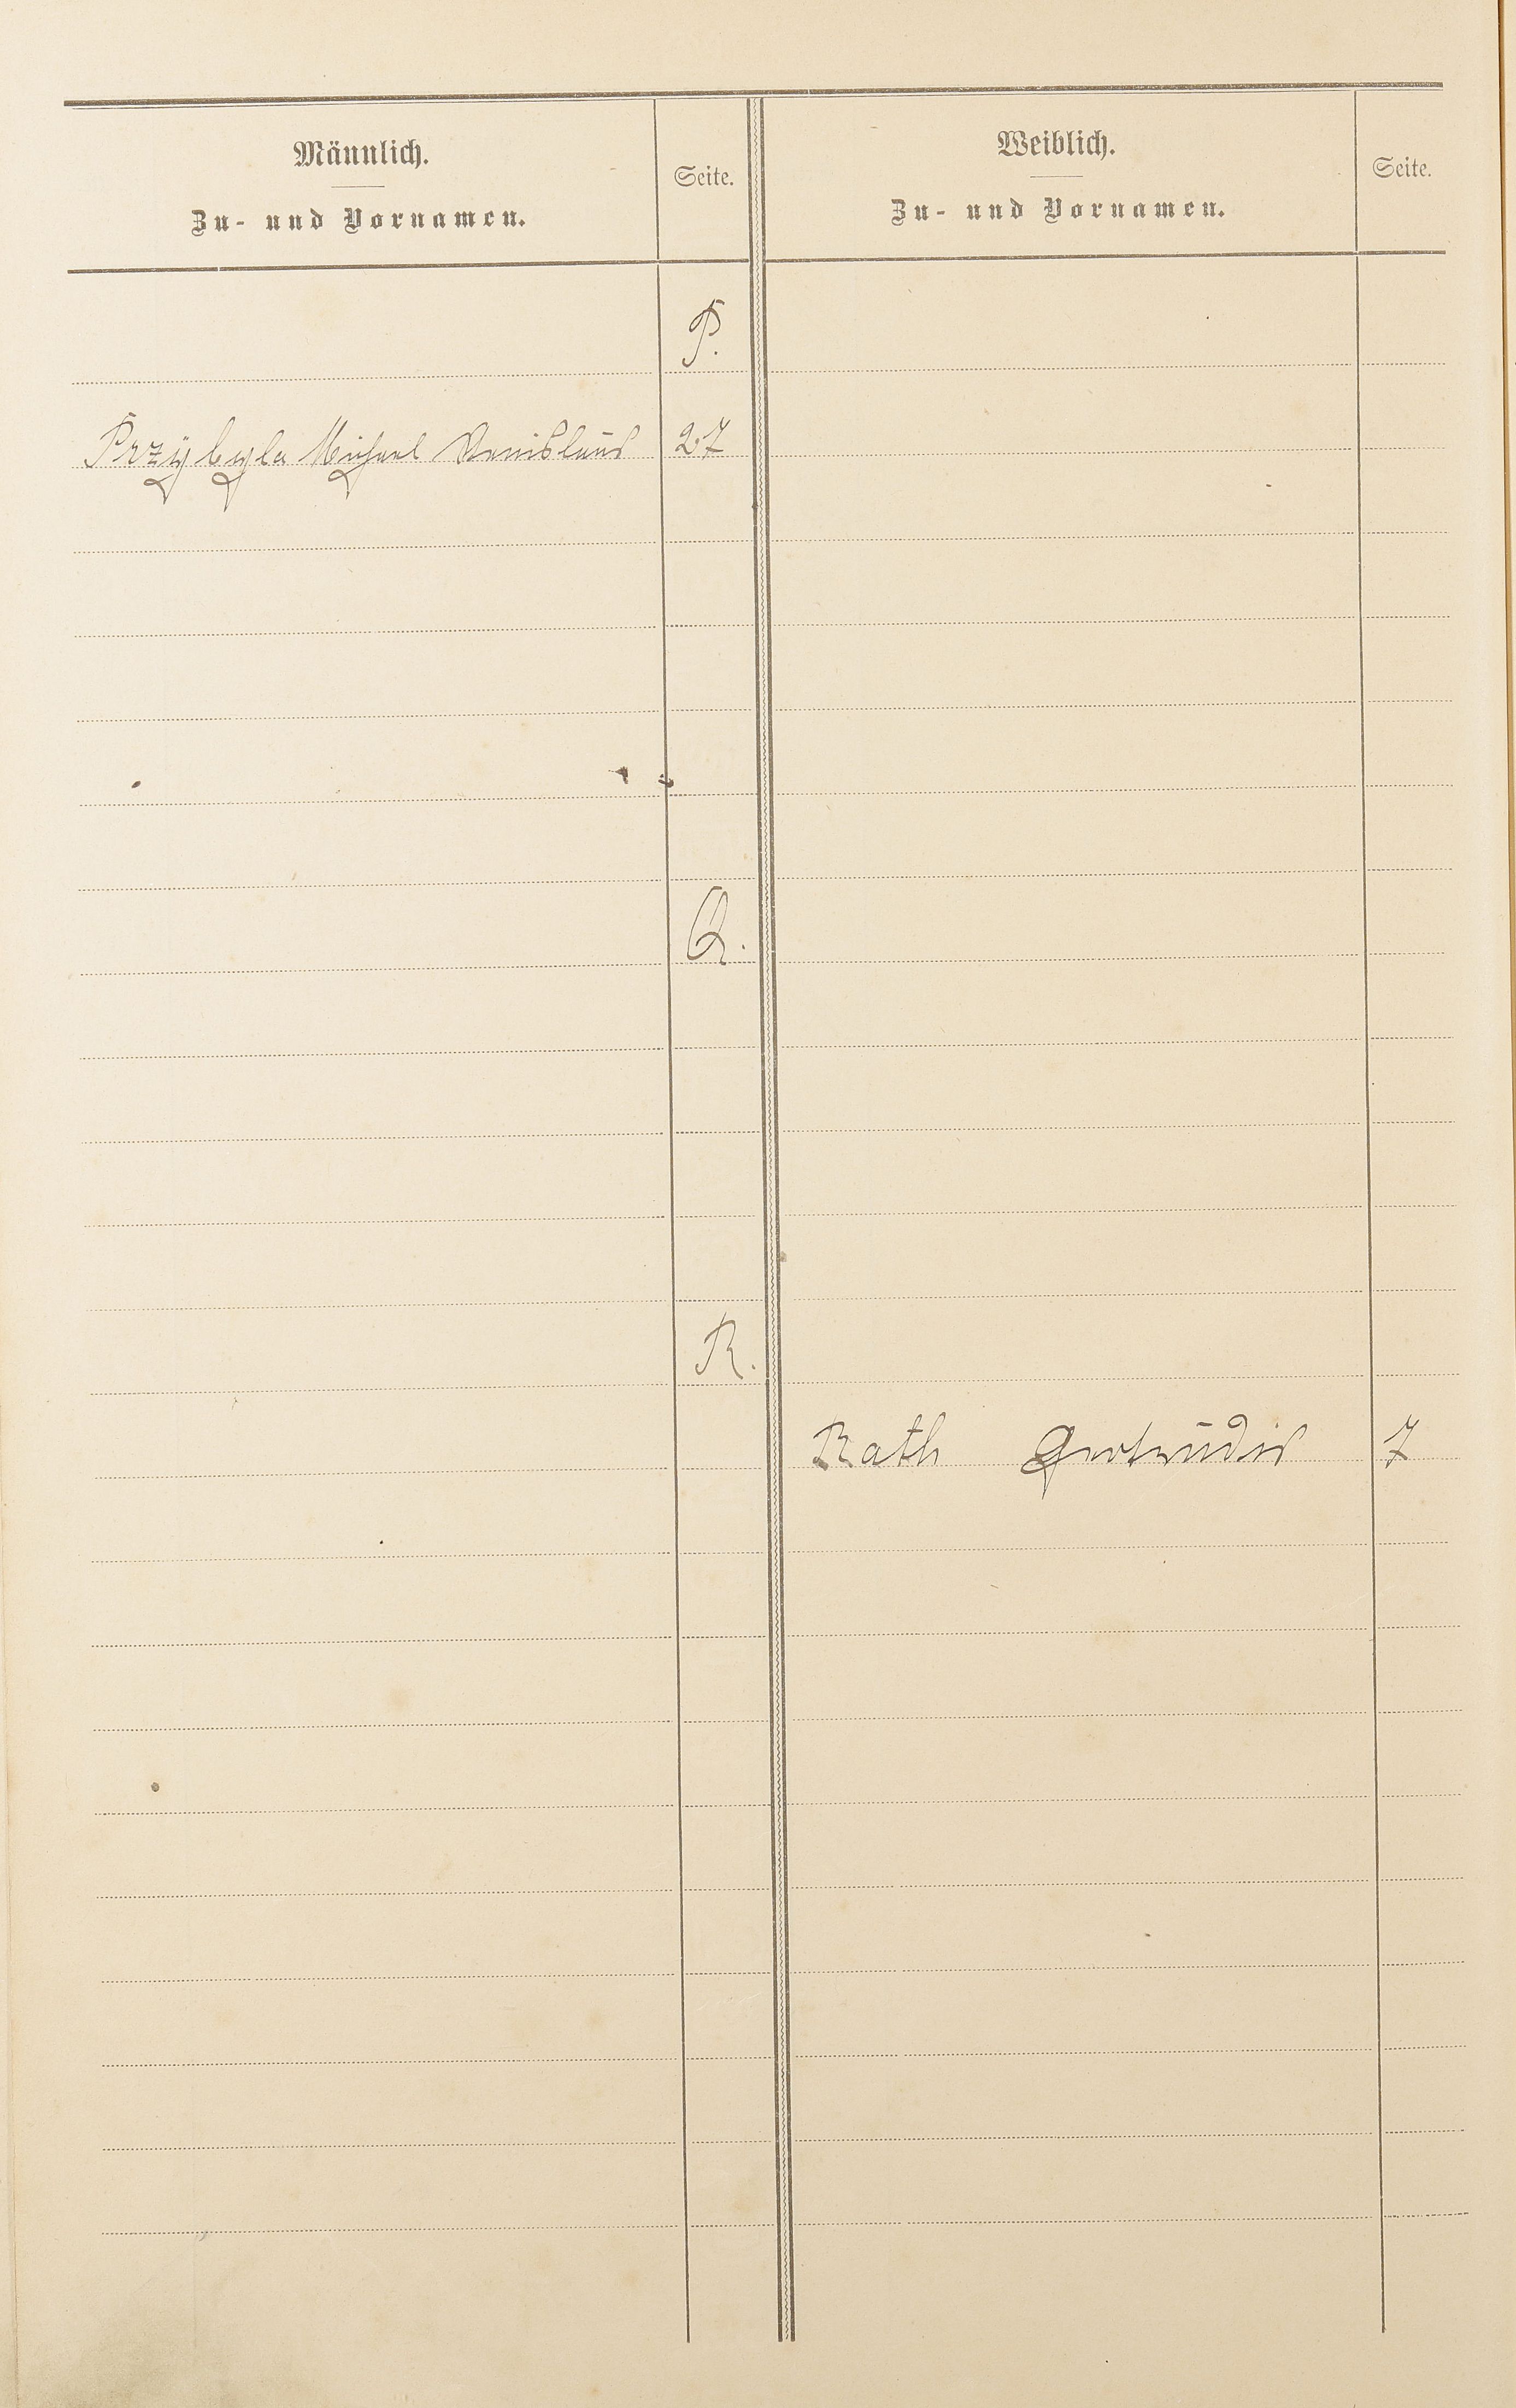 Männlich.
Zu- und Vornamen.
Seite.
Weiblich.
Zu- und Vornamen.
Seite.
P.
Przÿbyla Michael 27
Q.
R.
Rath Gertrudis 7